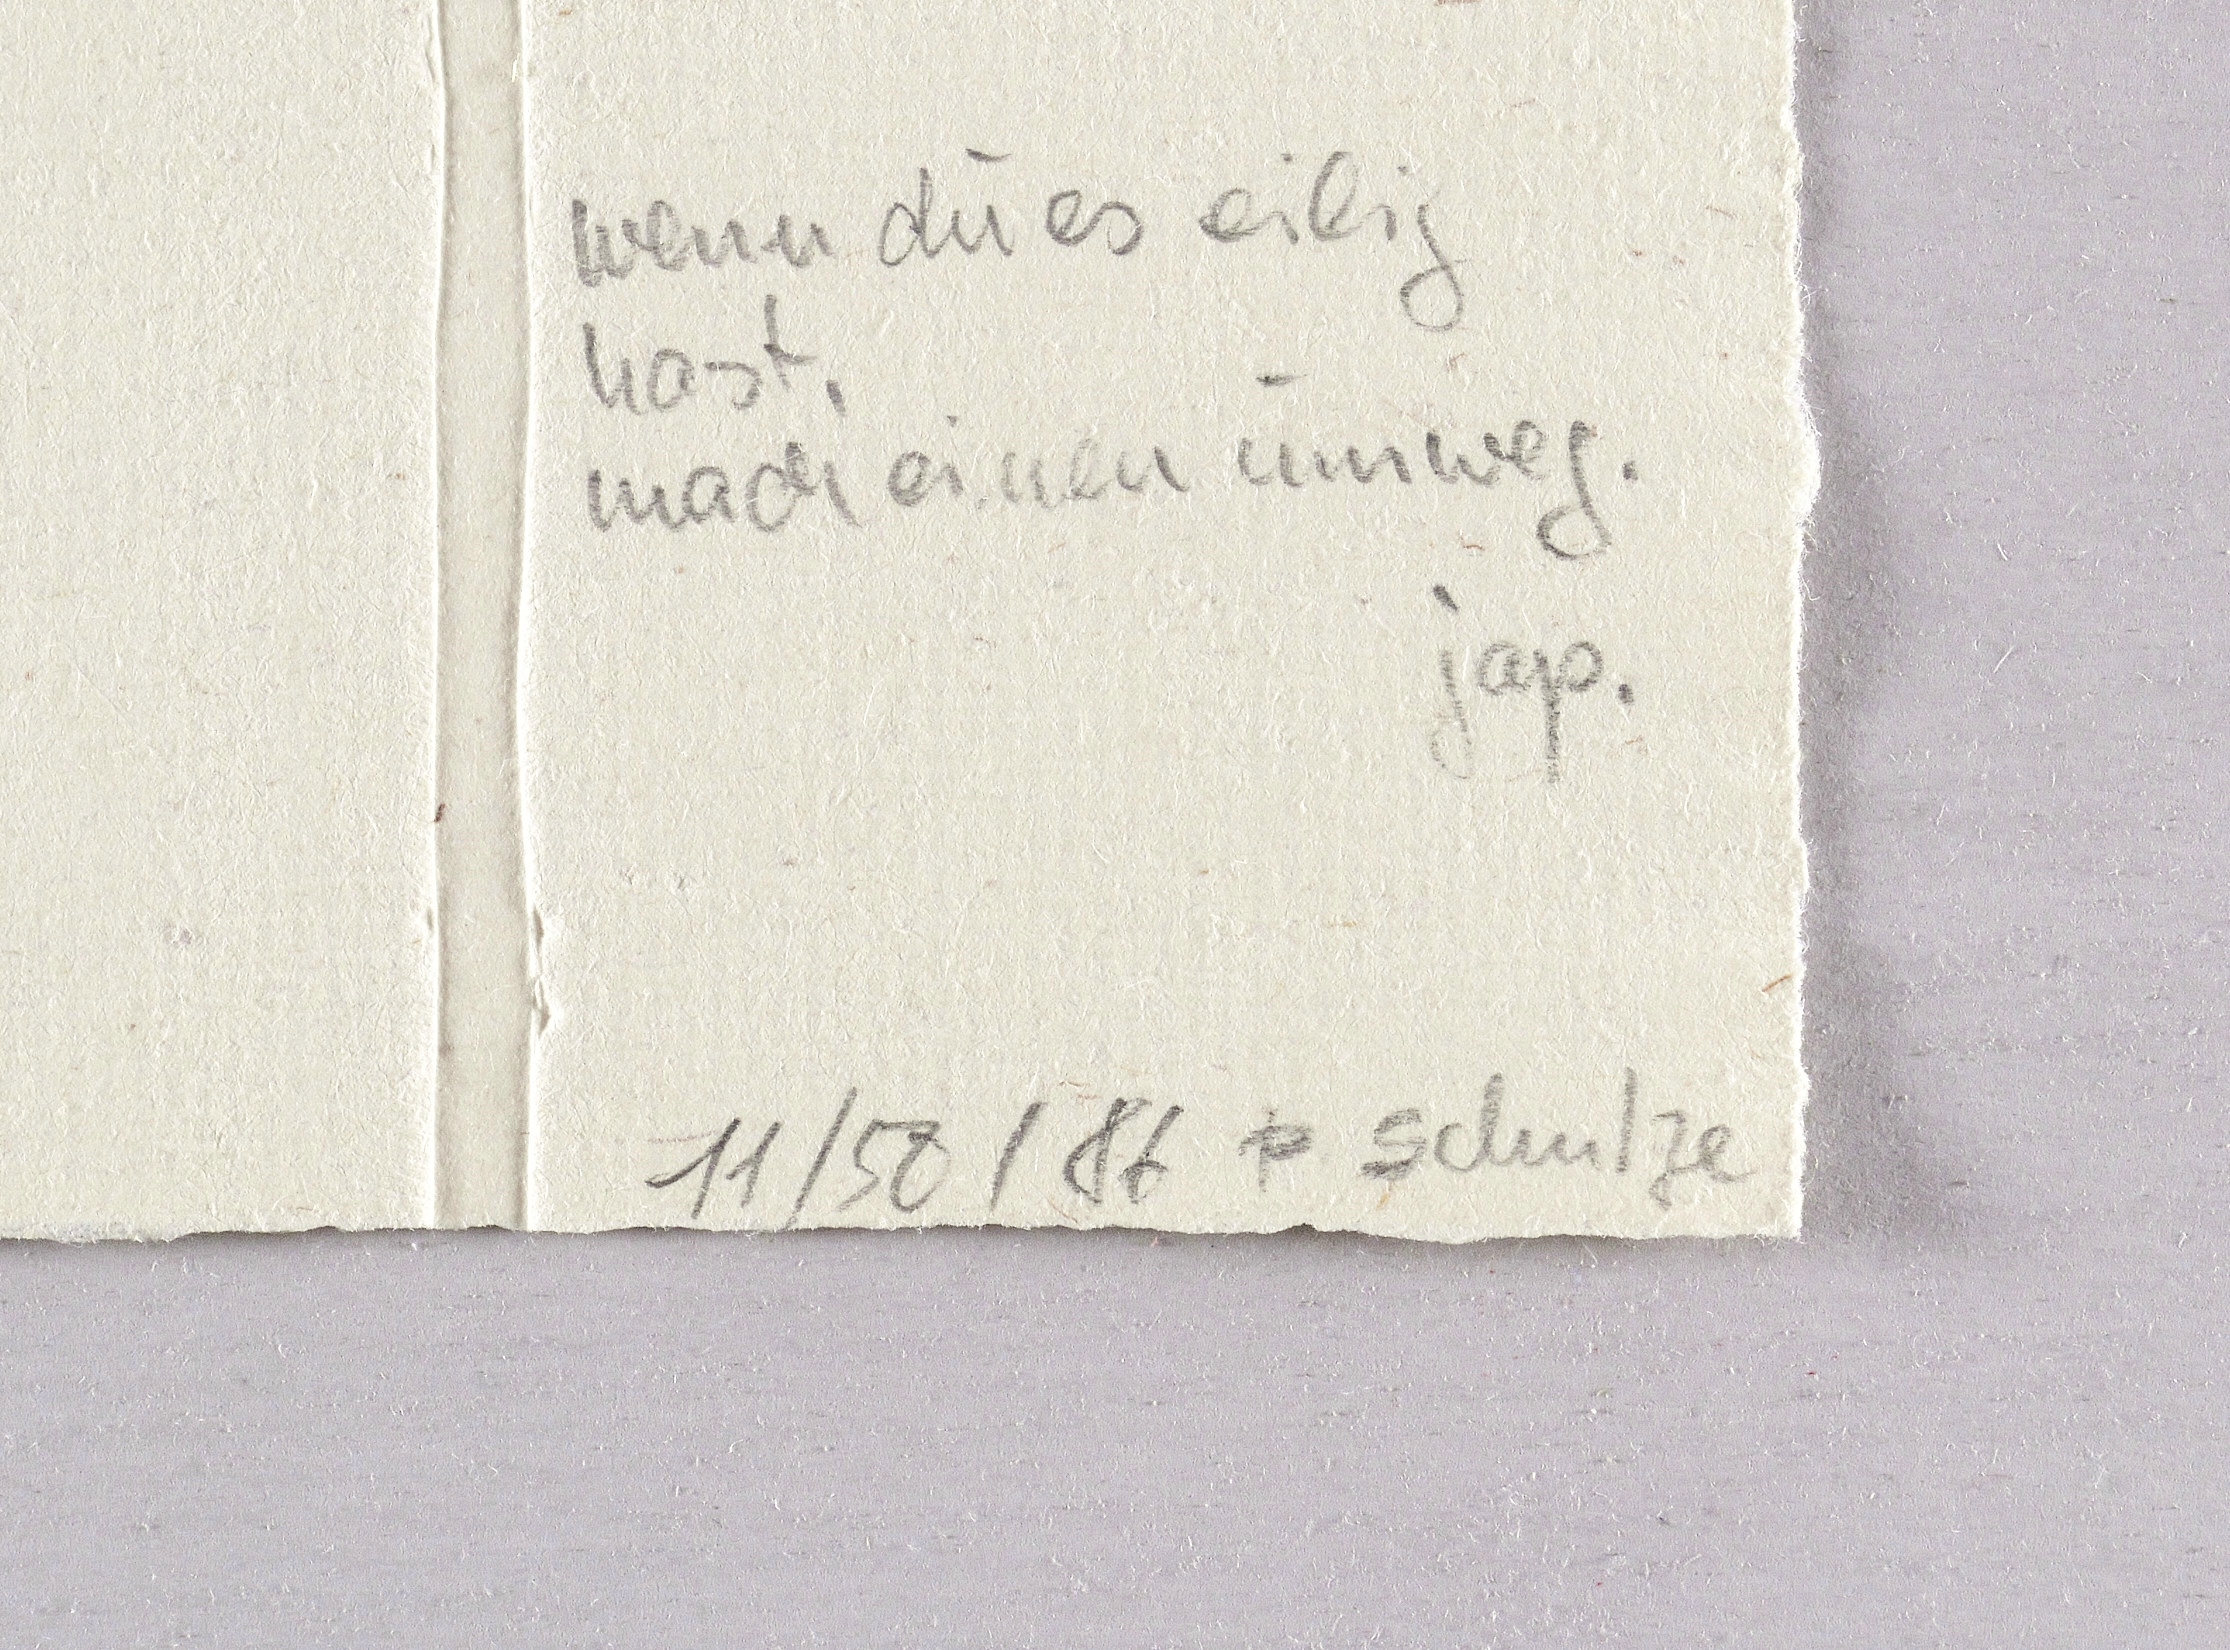 wenn du es eilig
hast,
mach einen umweg.
jap.
11/50 / 86 p schulze